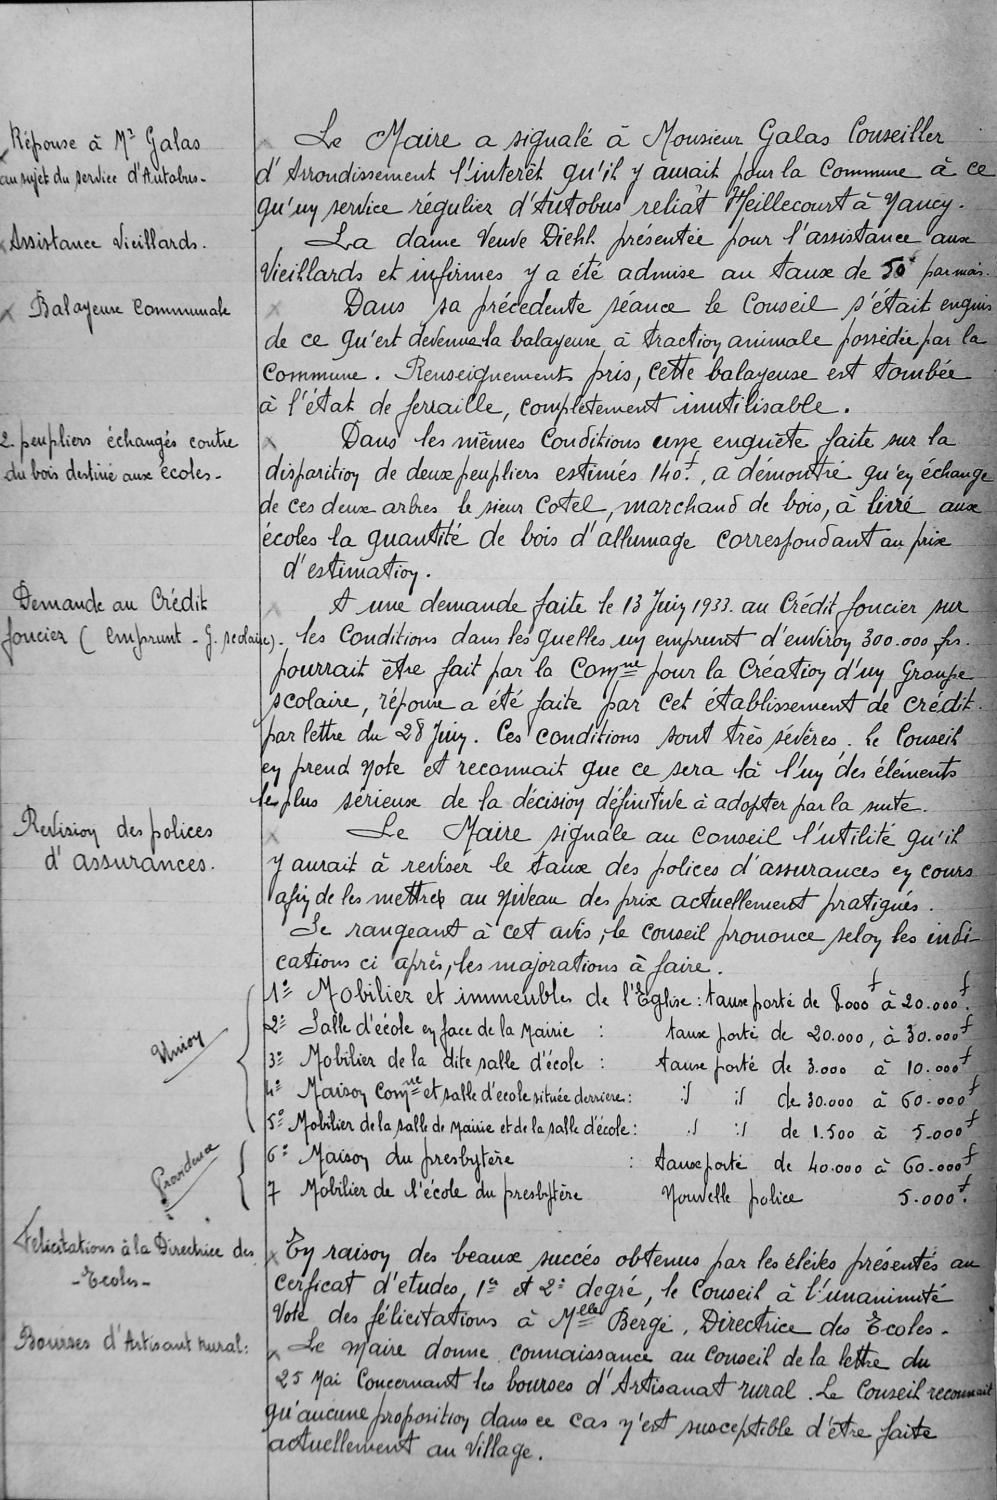 Réponse à Mr Galas
au sujet du service d'Autobus-
Le Maire a signalé à Monsieur Galas Conseiller
d'Arrondissement l'interêt qu'il y aurait pour la Commune à ce
qu'un service régulier d'Autobus reliât Heillecourt à Nancy.
Assistance Vieillards.
La dame Veuve Diehl présentée pour l'assistance aux
Vieillards et infirmes y a été admise au taux de 50f par mois.
Balayeuse Communale
Dans sa précedente séance le Conseil s'était enquis
de ce qu'est devenue la balayeuse à traction animale possédée par la
Commune. Renseignements pris, cette balayeuse est tombée
à l'état de ferraille, complètement inutilisable.
2 peupliers échangés contre
du bois destiné aux écoles-
Dans les mêmes Conditions une enquête faite sur la
disparition de deux peupliers estimés 140f, a démontré qu'en échange
de ces deux arbres le sieur Cotel, marchand de bois, à livré aux
écoles la quantité de bois d'allumage correspondant au prix
d'estimation.
Demande au Crédit
foncier (Emprunt - G. scolaire).
A une demande faite le 13 Juin 1933. au Crédit foncier sur
les Conditions dans les quelles un emprunt d'environ 300.000 frs.
pourrait être fait par la Comne pour la Création d'un Groupe
scolaire, réponse a été faite par cet établissement de crédit.
par lettre du 28 Juin. Ces conditions sont très sévères. Le Conseil
en prend note et reconnait que ce sera là l'un des éléments
les plus sérieux de la décision définitive à adopter par la suite.
Revision des polices
d'assurances.
Le Maire signale au Conseil l'utilité qu'il
y aurait à reviser le taux des polices d'assurances en cours
afin de les mettre au Niveau des prix actuellement pratiqués.
Se rangeant à cet avis, le conseil prononce selon les indi-
cations ci après, les majorations à faire.
Union
1º Mobilier et immeubles de l'Eglise : taux porté de 8.000f à 20.000f.
2º Salle d'école en face de la Mairie : taux porté de 20.000, à 30.000f
3º Mobilier de la dite salle d'école : taux porté de 3.000 à 10.000f
4º Maison Comne et salle d'école située derrière : :/ :/ de 30.000 à 60.000f
5º Mobilier de la salle de Mairie et de la salle d'école : :/ :/ de 1.500 à 5.000f
Providence
6º Maison du presbytère : taux porté de 40.000 à 60.000f
7 Mobilier de l'école du presbytère Nouvelle police 5.000f.
Felicitations à la Directrice des
-Ecoles-
En raison des beaux succés obtenus par les élèves présentés au
cerficat d'études, 1er et 2e degré, le Conseil à l'unanimité
Vote des félicitations à Melle Bergé, Directrice des Ecoles-
Bourses d'Artisant rural:
Le Maire donne connaissance au Conseil de la lettre du
25 Mai Concernant les bourses d'Artisanat rural. Le Conseil reconnait
qu'aucune proposition dans ce cas n'est susceptible d'être faite
actuellement au Village.